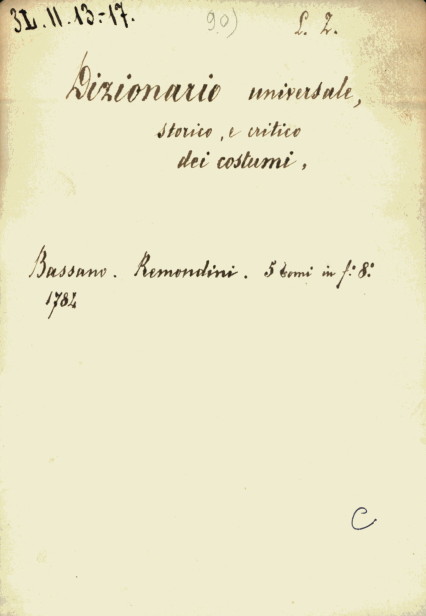 3L. II. 13-17. 90) L. Z.
Dizionario universale,
storico, e critico
dei costumi,
Bassano. Remondini. 5 tomi in f.° 8.°
1784
C